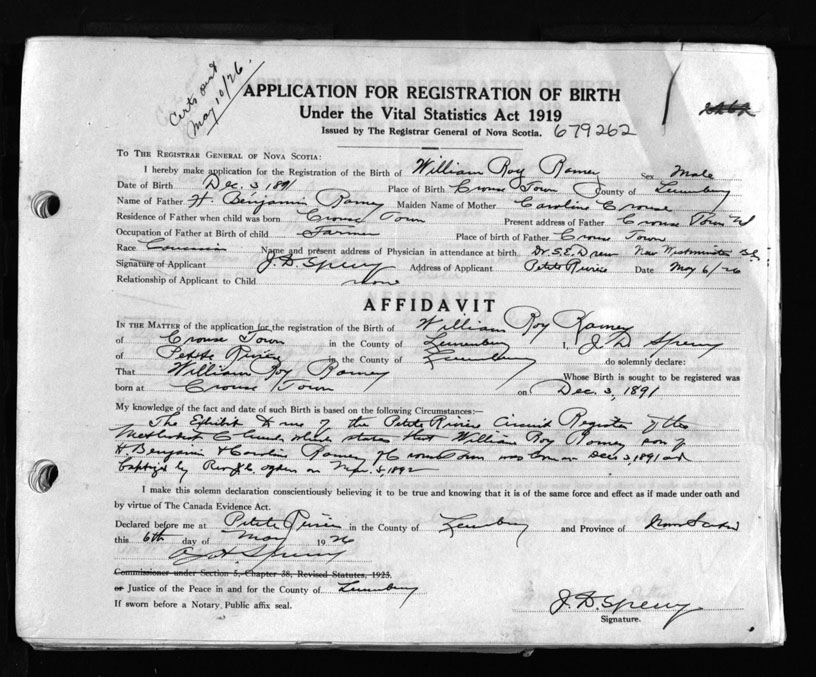 Certs out
May 10/26.
APPLICATION FOR REGISTRATION OF BIRTH
Under the Vital Statistics Act 1919
Issued by The Registrar General of Nova Scotia. 679262
TO THE REGISTRAR GENERAL OF NOVA SCOTIA:
I hereby make application for the Registration of the Birth of William Roy Ramey Sex Male
Date of Birth Dec. 3, 1891 Place of Birth Crouse Town County of Lunenburg
Name of Father H. Benjamin Ramey Maiden Name of Mother Caroline Crouse
Residence of Father when child was born Crouse Town Present address of Father Crouse Town
Occupation of Father at Birth of child Farmer Place of birth of Father Crouse Town
Race Name and present address of Physician in attendance at birth Dr. S.E. Drew New Westminster B.C.
Signature of Applicant J. D. Sperry Address of Applicant Petite Riviere Date May 6/26
Relationship of Applicant to Child None
AFFIDAVIT
IN THE MATTER of the application for the registration of the Birth of William Roy Ramey
of Crouse Town in the County of Lunenburg I, J. D. Sperry
of Petite Riviere in the County of Lunenburg do solemnly declare:
That William Roy Ramey Whose Birth is sought to be registered was
born at Crouse Town on Dec. 3, 1891
My knowledge of the fact and date of such Birth is based on the following Circumstances:—
The Exhibit to me of the Petite Riviere Circuit Register of the
Methodist Church, which states that William Roy Ramey son of
H. Benjamin & Caroline Ramey, of Crouse Town was born on Dec 3, 1891 and
baptized by Rev. Ogden on 1892
I make this solemn declaration conscientiously believing it to be true and knowing that it is of the same force and effect as if made under oath and
by virtue of The Canada Evidence Act.
Declared before me at Petite Riviere in the County of Lunenburg and Province of Nova Scotia
this 6th day of May 1926
H. Sperry
Commissioner under Section 5, Chapter 38, Revised Statutes, 1923.
or Justice of the Peace in and for the County of Lunenburg
If sworn before a Notary Public affix seal.
J. D. Sperry
Signature.